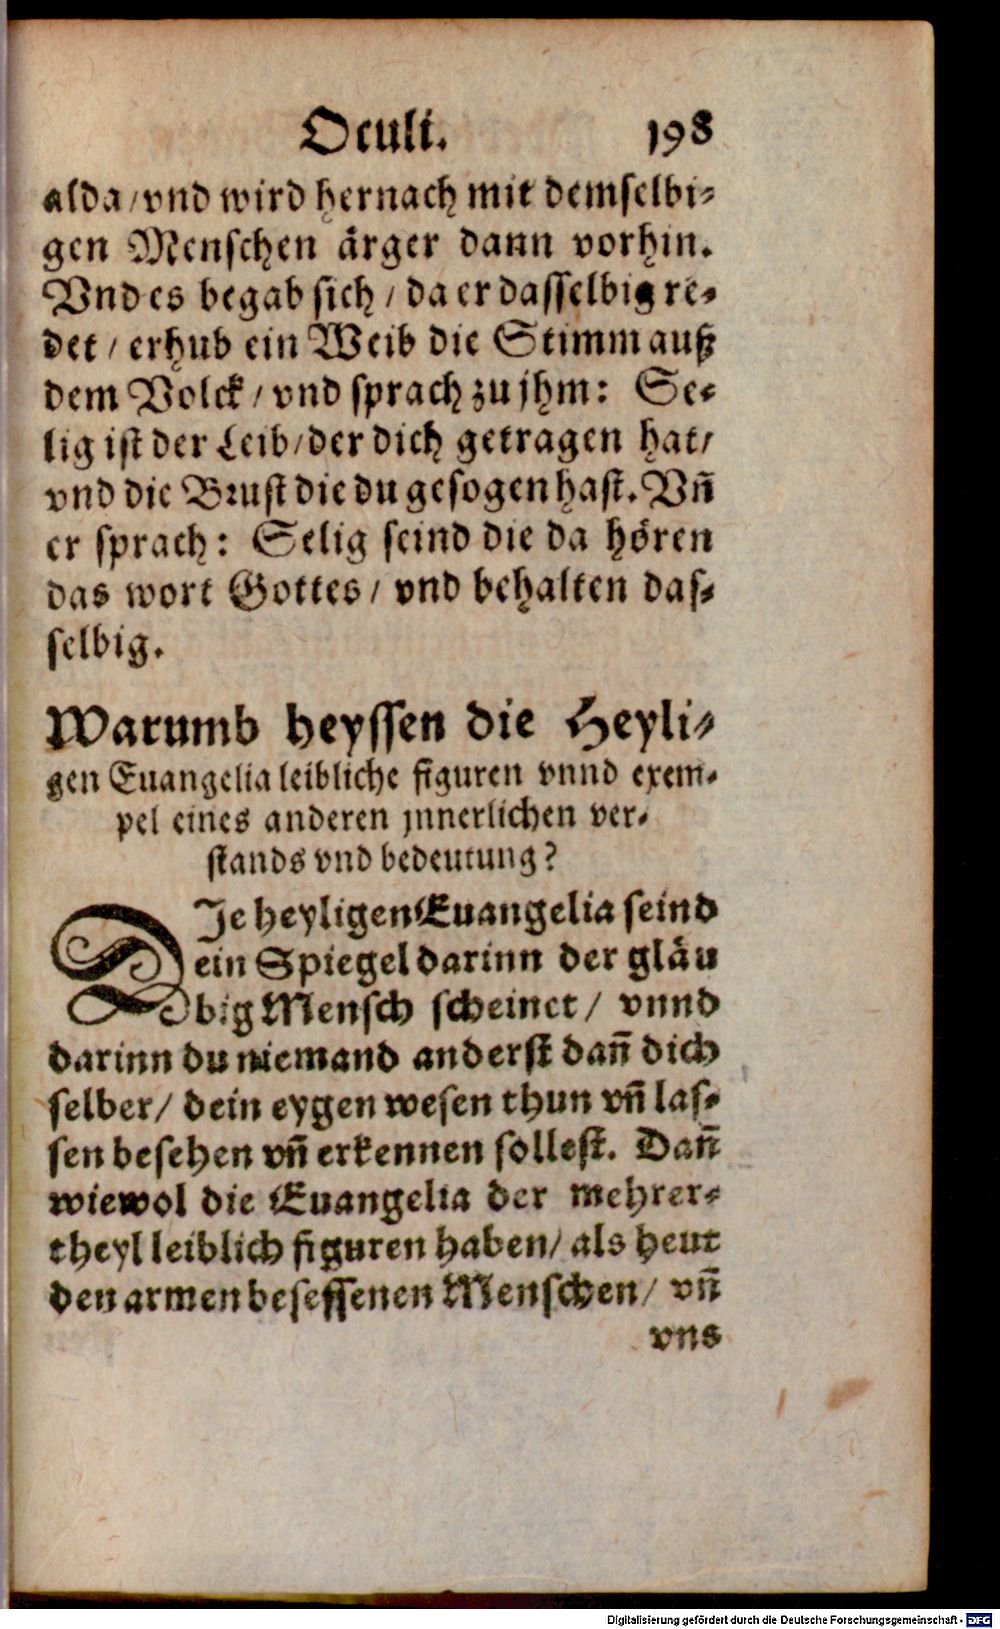 Oculi. 198
alda/vnd wird hernach mit demselbi-
gen Menschen ärger dann vorhin.
Vnd es begab sich/da er dasselbig re-
det/erhub ein Weib die Stimm auß
dem Volck/vnd sprach zu jhm: Se-
lig ist der Leib/der dich getragen hat/
vnd die Brust die du gesogen hast. Vn̄
er sprach: Selig seind die da hören
das wort Gottes/vnd behalten das-
selbig.
Warumb heyssen die Heyli-
gen Euangelia leibliche figuren vnnd exem-
pel eines anderen jnnerlichen ver-
stands vnd bedeutung?
DJe heyligen Euangelia seind
ein Spiegel darinn der gläu
big Mensch scheinet/ vnnd
darinn du niemand anderst dan̄ dich
selber/ dein eygen wesen thun vn̄ las-
sen besehen vn̄ erkennen sollest. Dan̄
wiewol die Euangelia der mehrer-
theyl leiblich figuren haben/ als heut
den armen besessenen Menschen/ vn̄
vns
Digitalisierung gefördert durch die Deutsche Forschungsgemeinschaft - DFG